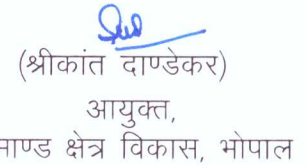 (श्रीकांत दाण्डेकर)
आयुक्त,
माण्ड क्षेत्र विकास, भोपाल